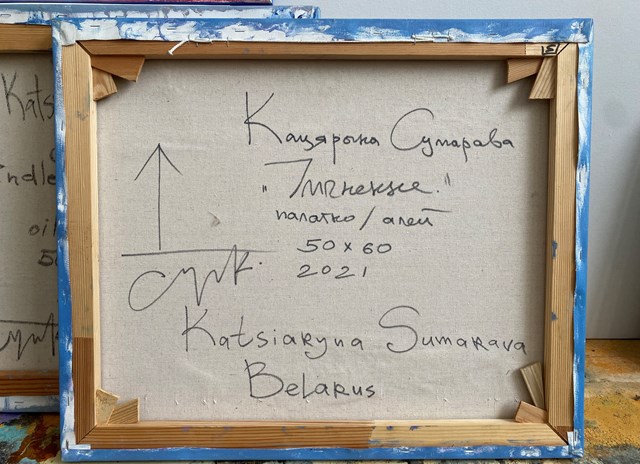 Кацярына Сумарава
"Імгненне."
палатно / алей
50 x 60
2021
Katsiaryna Sumarava
Belarus
Kats
ndle
oil